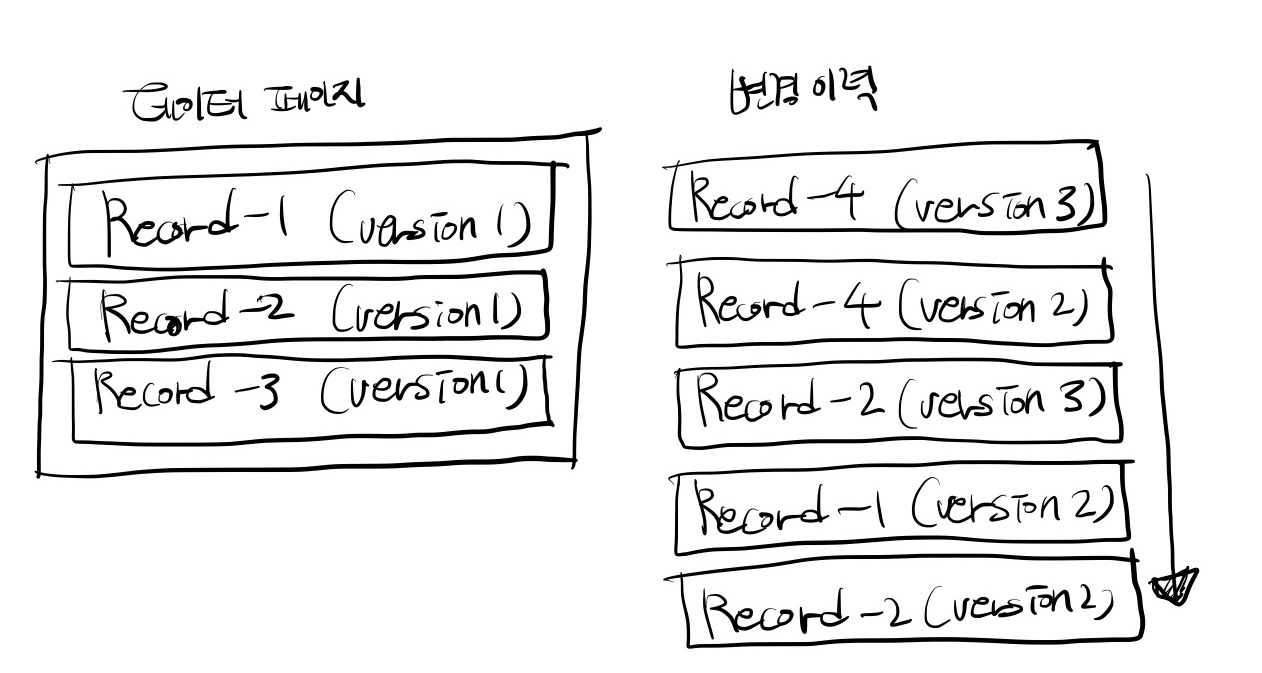 데이터 페이지
Record-1 (version 1)
Record-2 (version 1)
Record-3 (version 1)
변경 이력
Record-4 (version 3)
Record-4 (version 2)
Record-2 (version 3)
Record-1 (version 2)
Record-2 (version 2)